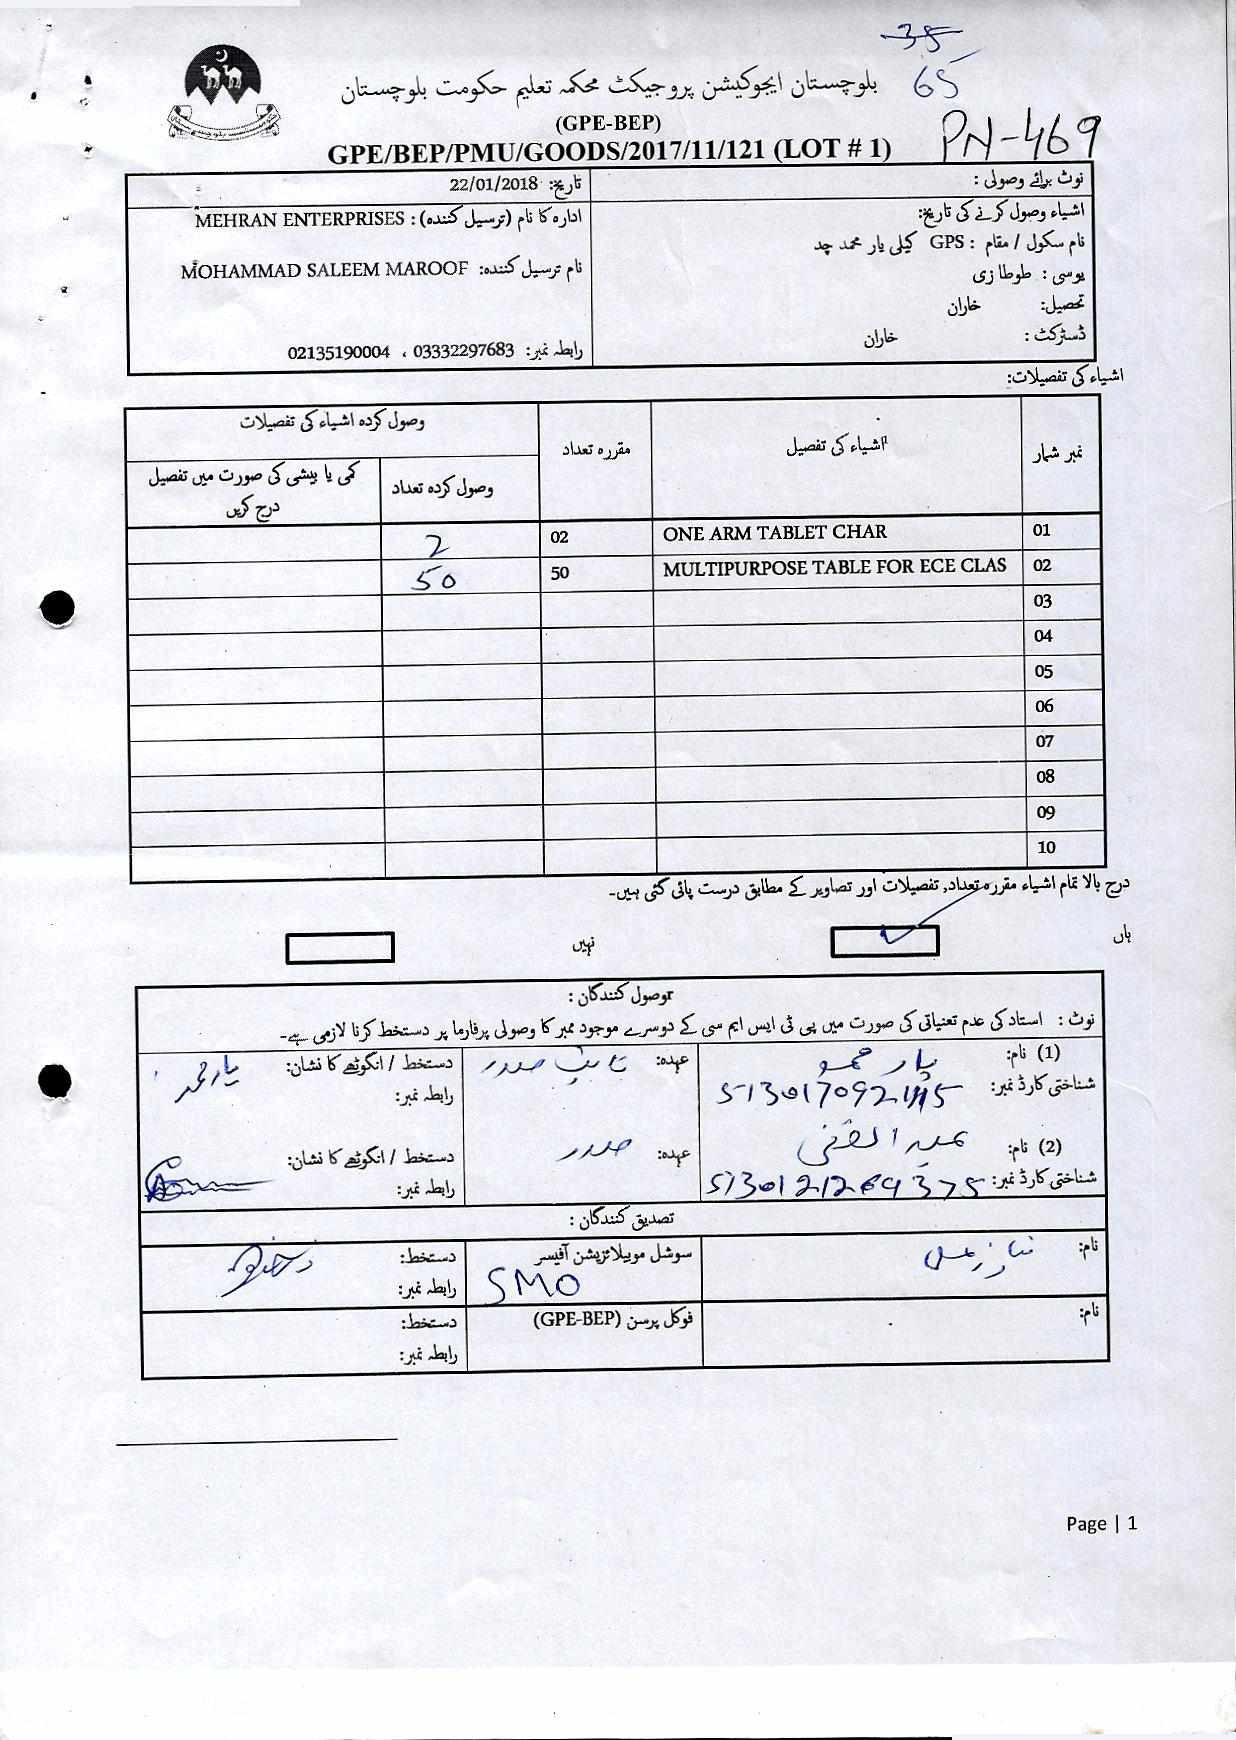 35
65
بلوچستان ایجوکیشن پروجیکٹ محکمہ تعلیم حکومت بلوچستان
(GPE-BEP)
GPE/BEP/PMU/GOODS/2017/11/121 (LOT # 1)
PN-469
نوٹ برائے وصولی :
تاریخ: 22/01/2018
اشیاء وصول کرنے کی تاریخ:
نام سکول / مقام : GPS کیلی یار محمد چد
یوسی : طوطازی
تحصیل: خاران
ڈسٹرکٹ : خاران
ادارہ کا نام (ترسیل کنندہ) : MEHRAN ENTERPRISES
نام ترسیل کنندہ: MOHAMMAD SALEEM MAROOF
رابطہ نمبر: 03332297683 ، 02135190004
اشیاء کی تفصیلات:
نمبر شمار اشیاء کی تفصیل مقررہ تعداد وصول کردہ اشیاء کی تفصیلات
وصول کردہ تعداد کمی یا بیشی کی صورت میں تفصیل درج کریں
01 ONE ARM TABLET CHAR 02 2
02 MULTIPURPOSE TABLE FOR ECE CLAS 50 50
03
04
05
06
07
08
09
10
درج بالا تمام اشیاء مقررہ تعداد, تفصیلات اور تصاویر کے مطابق درست پائی گئی ہیں۔
ہاں نہیں
وصول کنندگان :
نوٹ : استاد کی عدم تعنیاتی کی صورت میں پی ٹی ایس ایم سی کے دوسرے موجود ممبر کا وصولی پرفارما پر دستخط کرنا لازمی ہے۔
(1) نام: یار محمد عہدہ: نایب صدر دستخط / انگوٹھے کا نشان: یار محمد
شناختی کارڈ نمبر: رابطہ نمبر:
(2) نام: عبد الغنی عہدہ: صدر دستخط / انگوٹھے کا نشان:
شناختی کارڈ نمبر: 5130121269375 رابطہ نمبر:
تصدیق کنندگان :
نام: سوشل موبیلائزیشن آفیسر دستخط:
SMO رابطہ نمبر:
نام: فوکل پرسن (GPE-BEP) دستخط:
رابطہ نمبر:
Page | 1